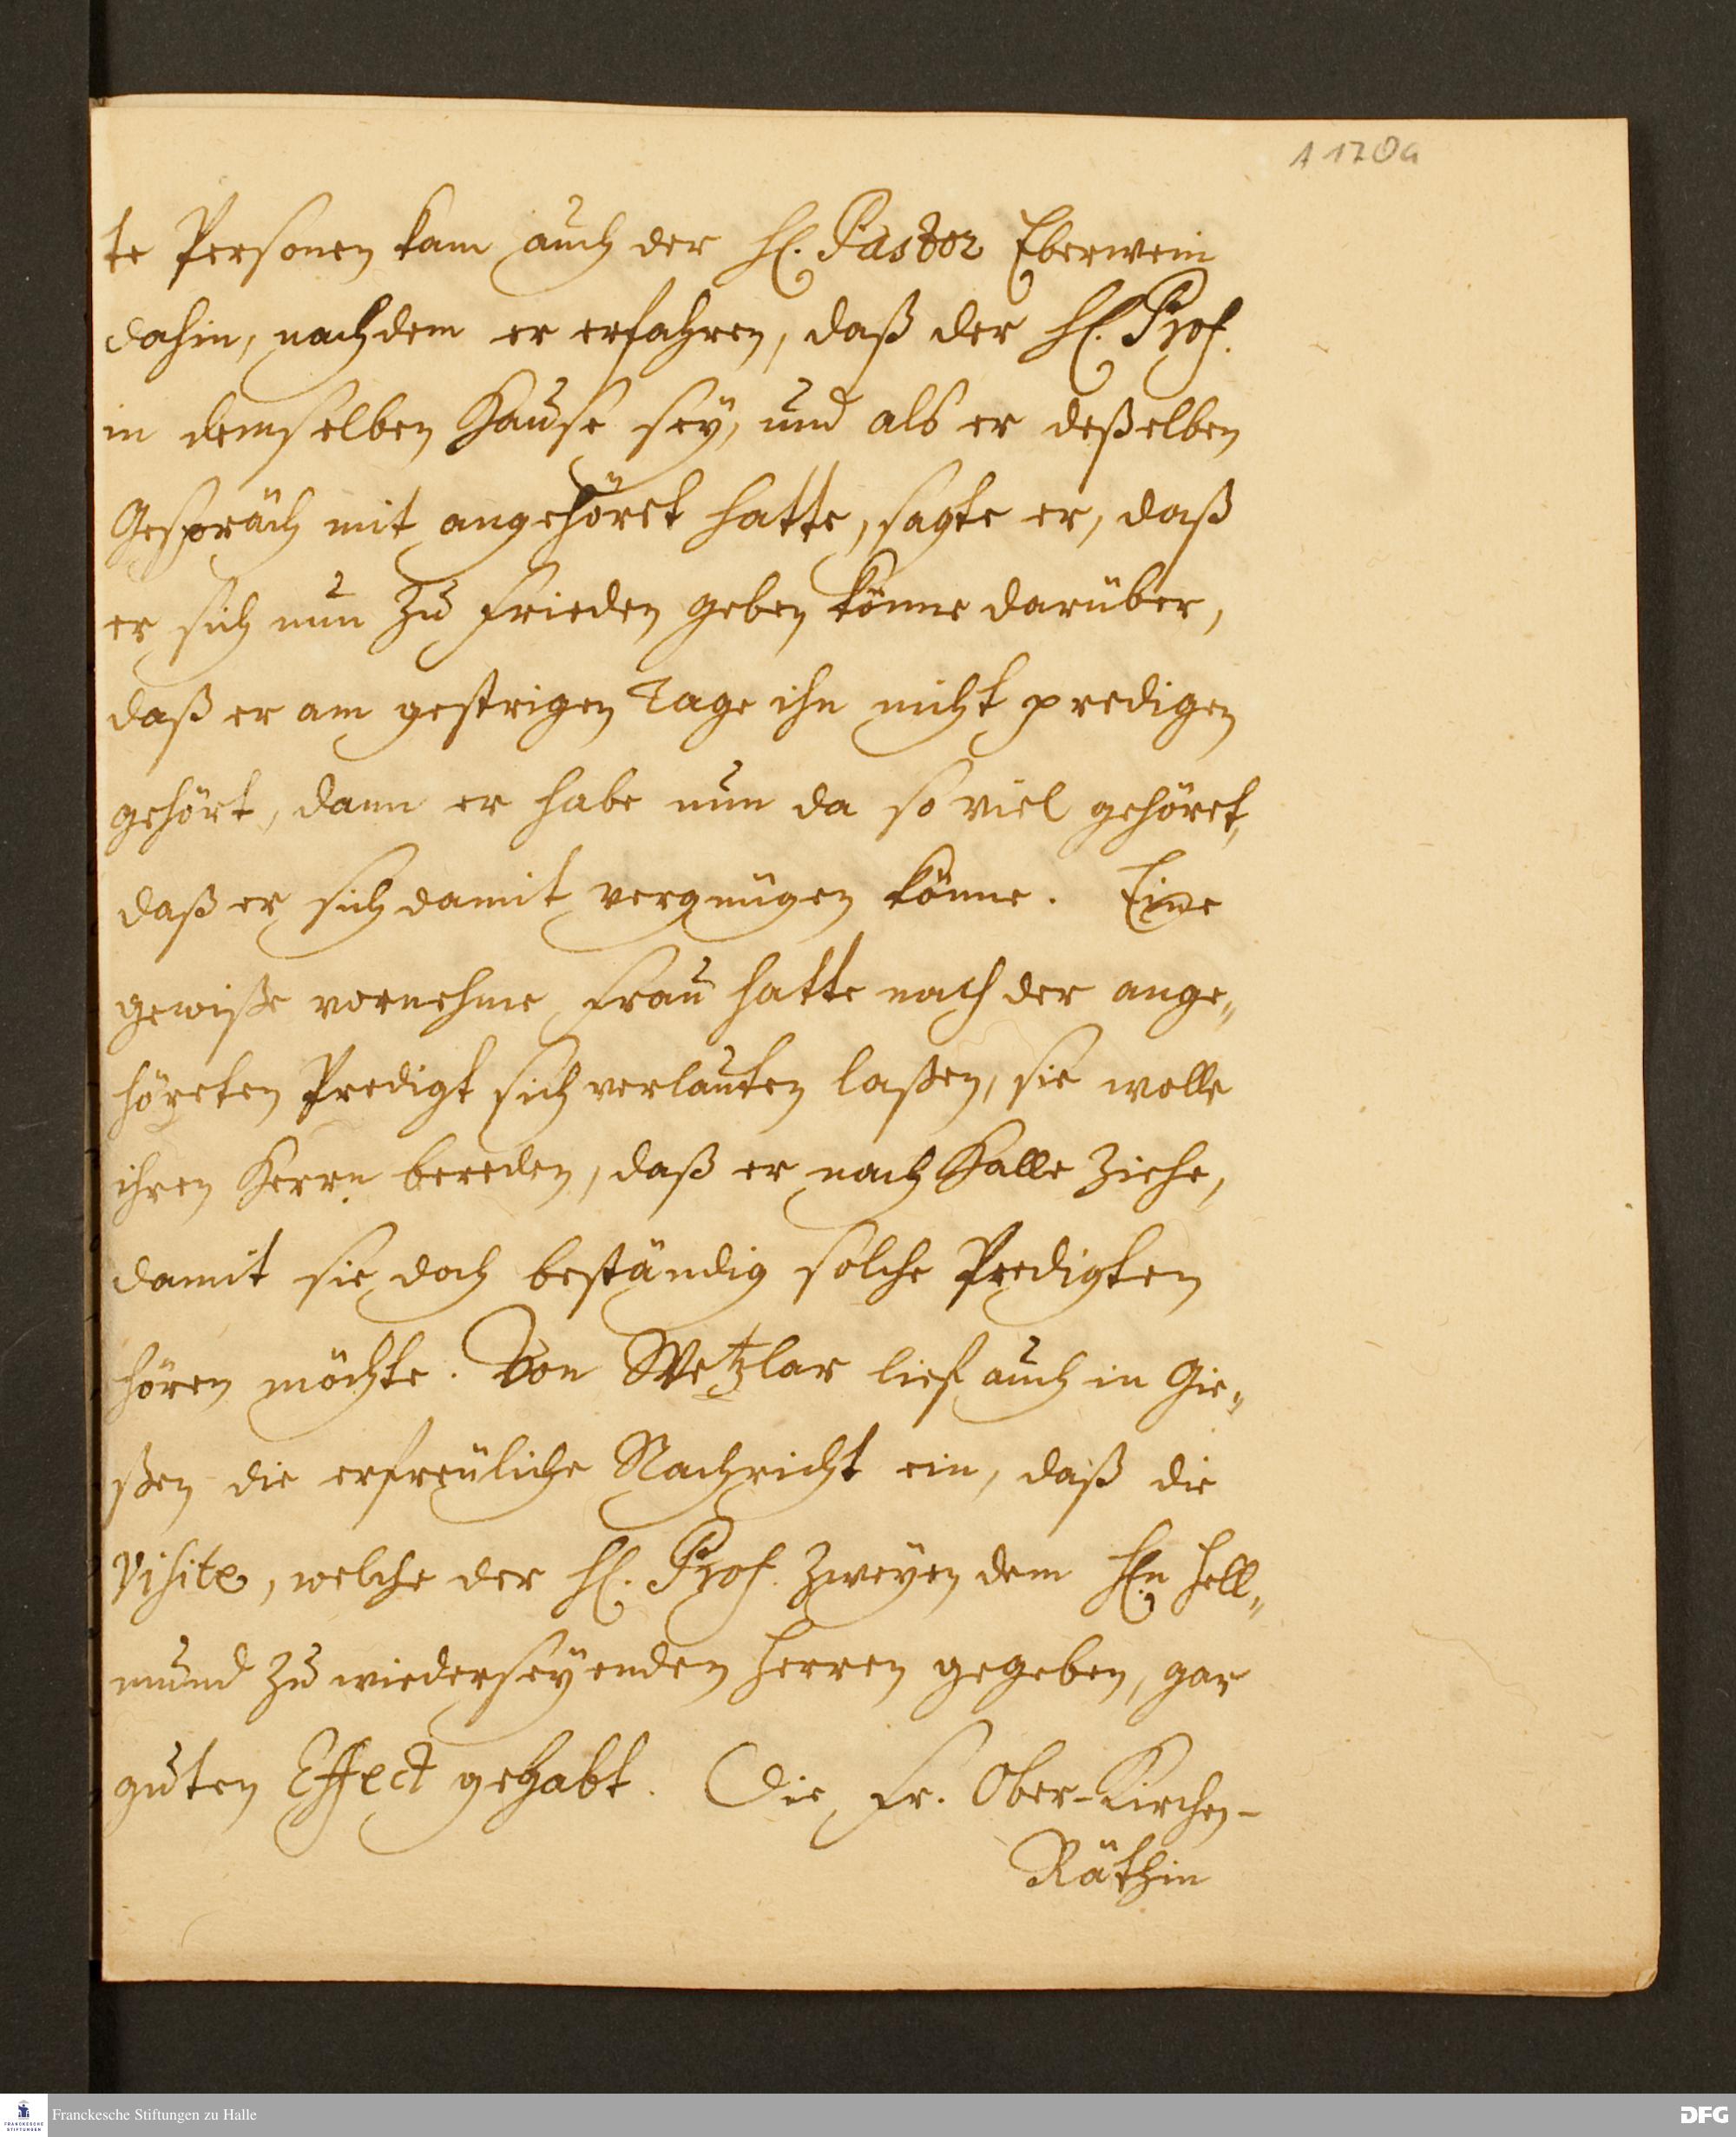 A 170a
te Personen kam auch der H. Pastor Eberwein
dahin, nachdem er erfahren, daß der H. Prof.
in demselben Hause seÿ, und als er deßelben
Gespräch mit angehöret hatte, sagte er, daß
er sich nun zu frieden geben könne darüber,
daß er am gestrigen Tage ihn nicht predigen
gehört, dann er habe nun da so viel gehöret,
daß er sich damit vergnügen könne. Eine
gewiße vornehme Frau hatte nach der ange„
höreten Predigt sich verlauten laßen, sie wolle
ihren Herrn bereden, daß er nach Halle ziehe,
damit sie doch beständig solche Predigten
hören möchte. Von Wetzlar lief auch in Gie„
ßen die erfreüliche Nachricht ein, daß die
Visite, welche der H. Prof. zweÿen dem H.n Hell„
mund zu wiederseÿenden Herren gegeben, gar
guten Effect gehabt. Die Fr. Ober-Kirchen-
Räthin
Franckesche Stiftungen zu Halle
DFG